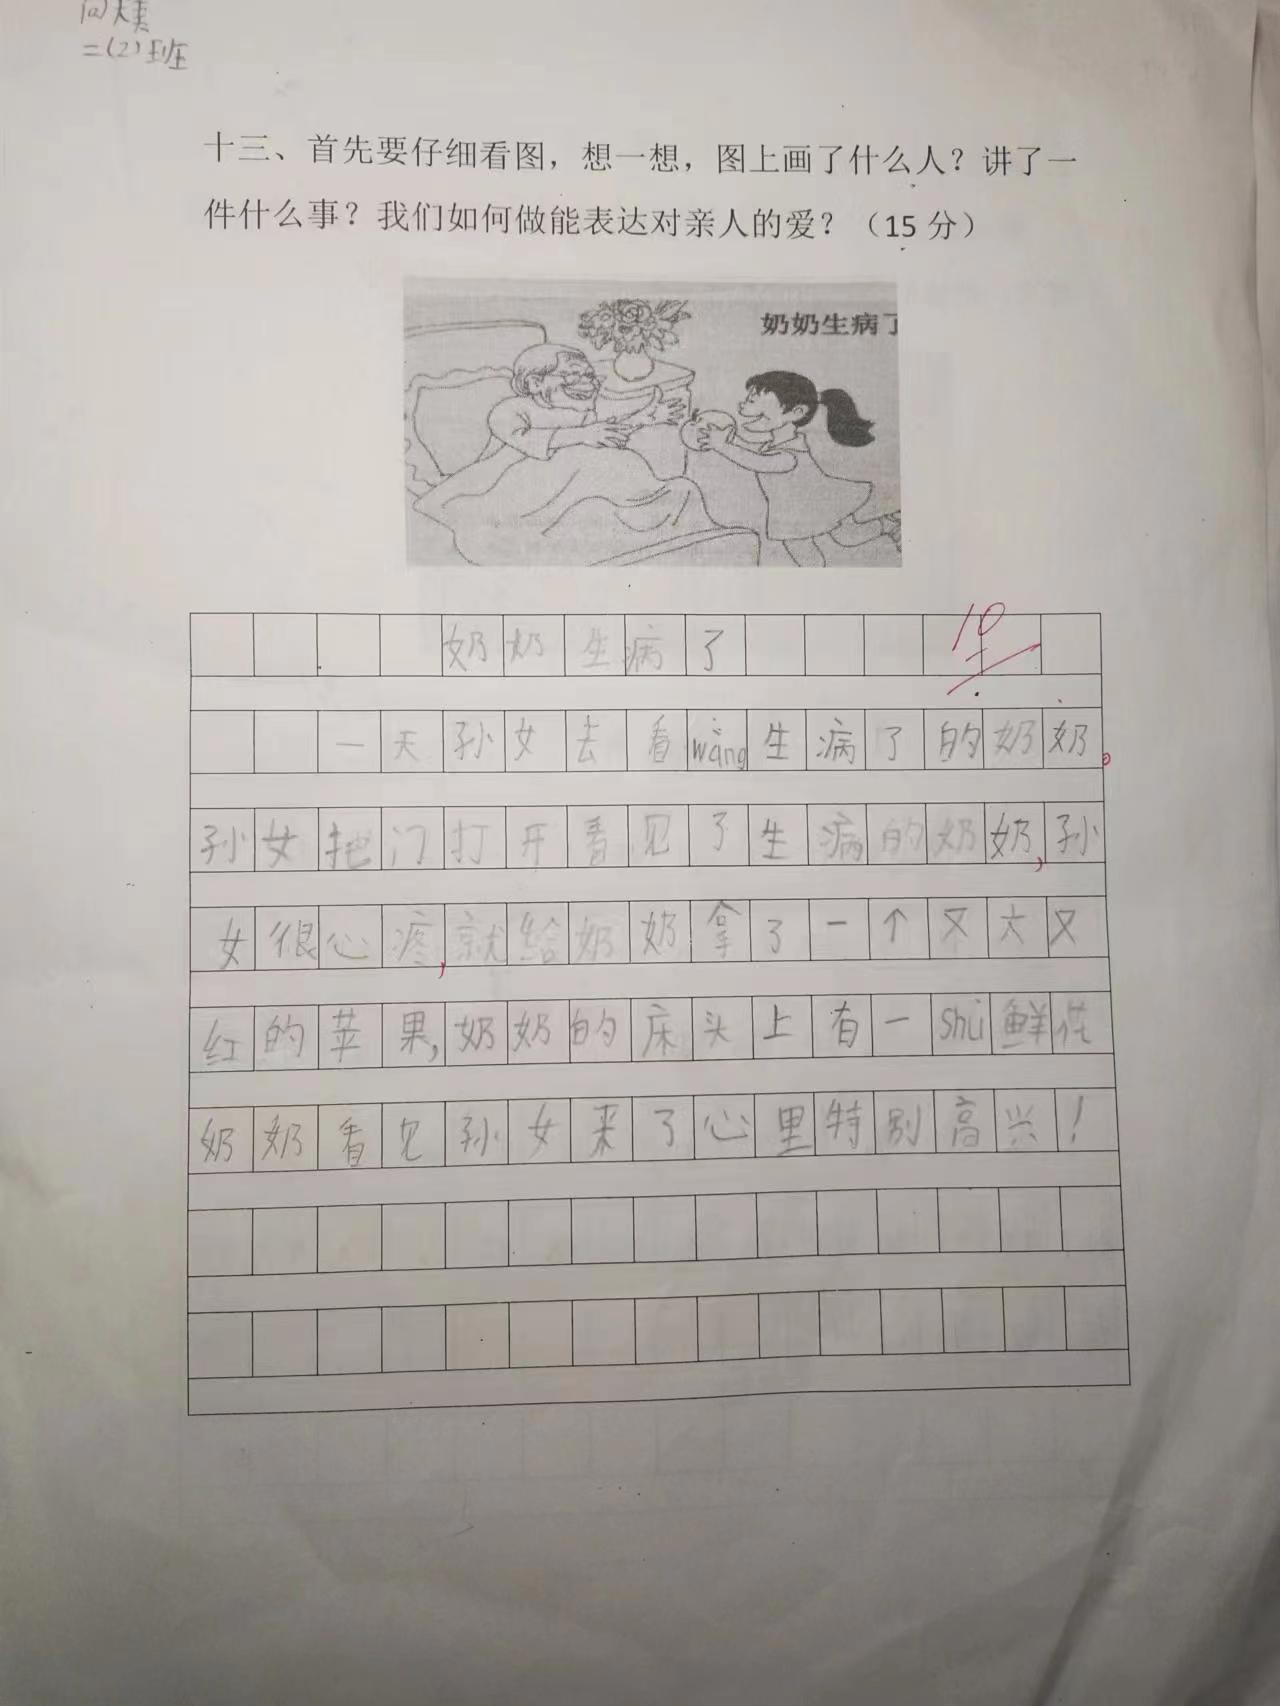 向大美
二(2)班
十三、首先要仔细看图，想一想，图上画了什么人？讲了一
件什么事？我们如何做能表达对亲人的爱？（15 分）
奶奶生病了
奶奶生病了
10
一天孙女去看wàng生病了的奶奶。
孙女把门打开看见了生病的奶奶，孙
女很心疼，就给奶奶拿了一个又大又
红的苹果，奶奶的床头上有一shù鲜花
奶奶看见孙女来了心里特别高兴！